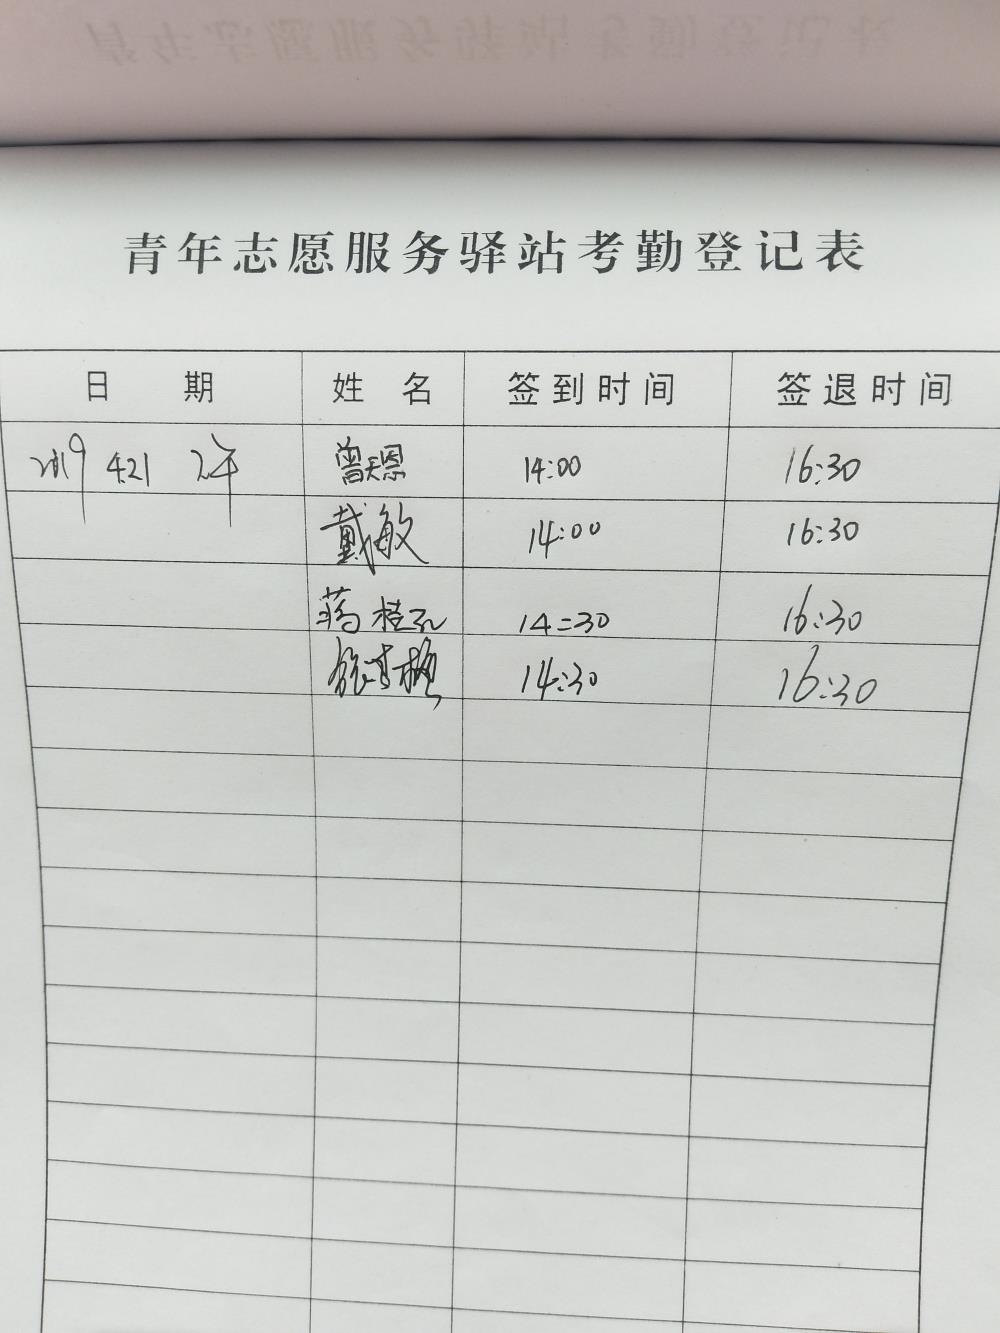 青年志愿服务驿站考勤登记表
日 期 姓 名 签到时间 签退时间
2019 4.21 下午 曾天恩 14:00 16:30
戴敏 14:00 16:30
蒋桂 14:30 16:30
14:30 16:30